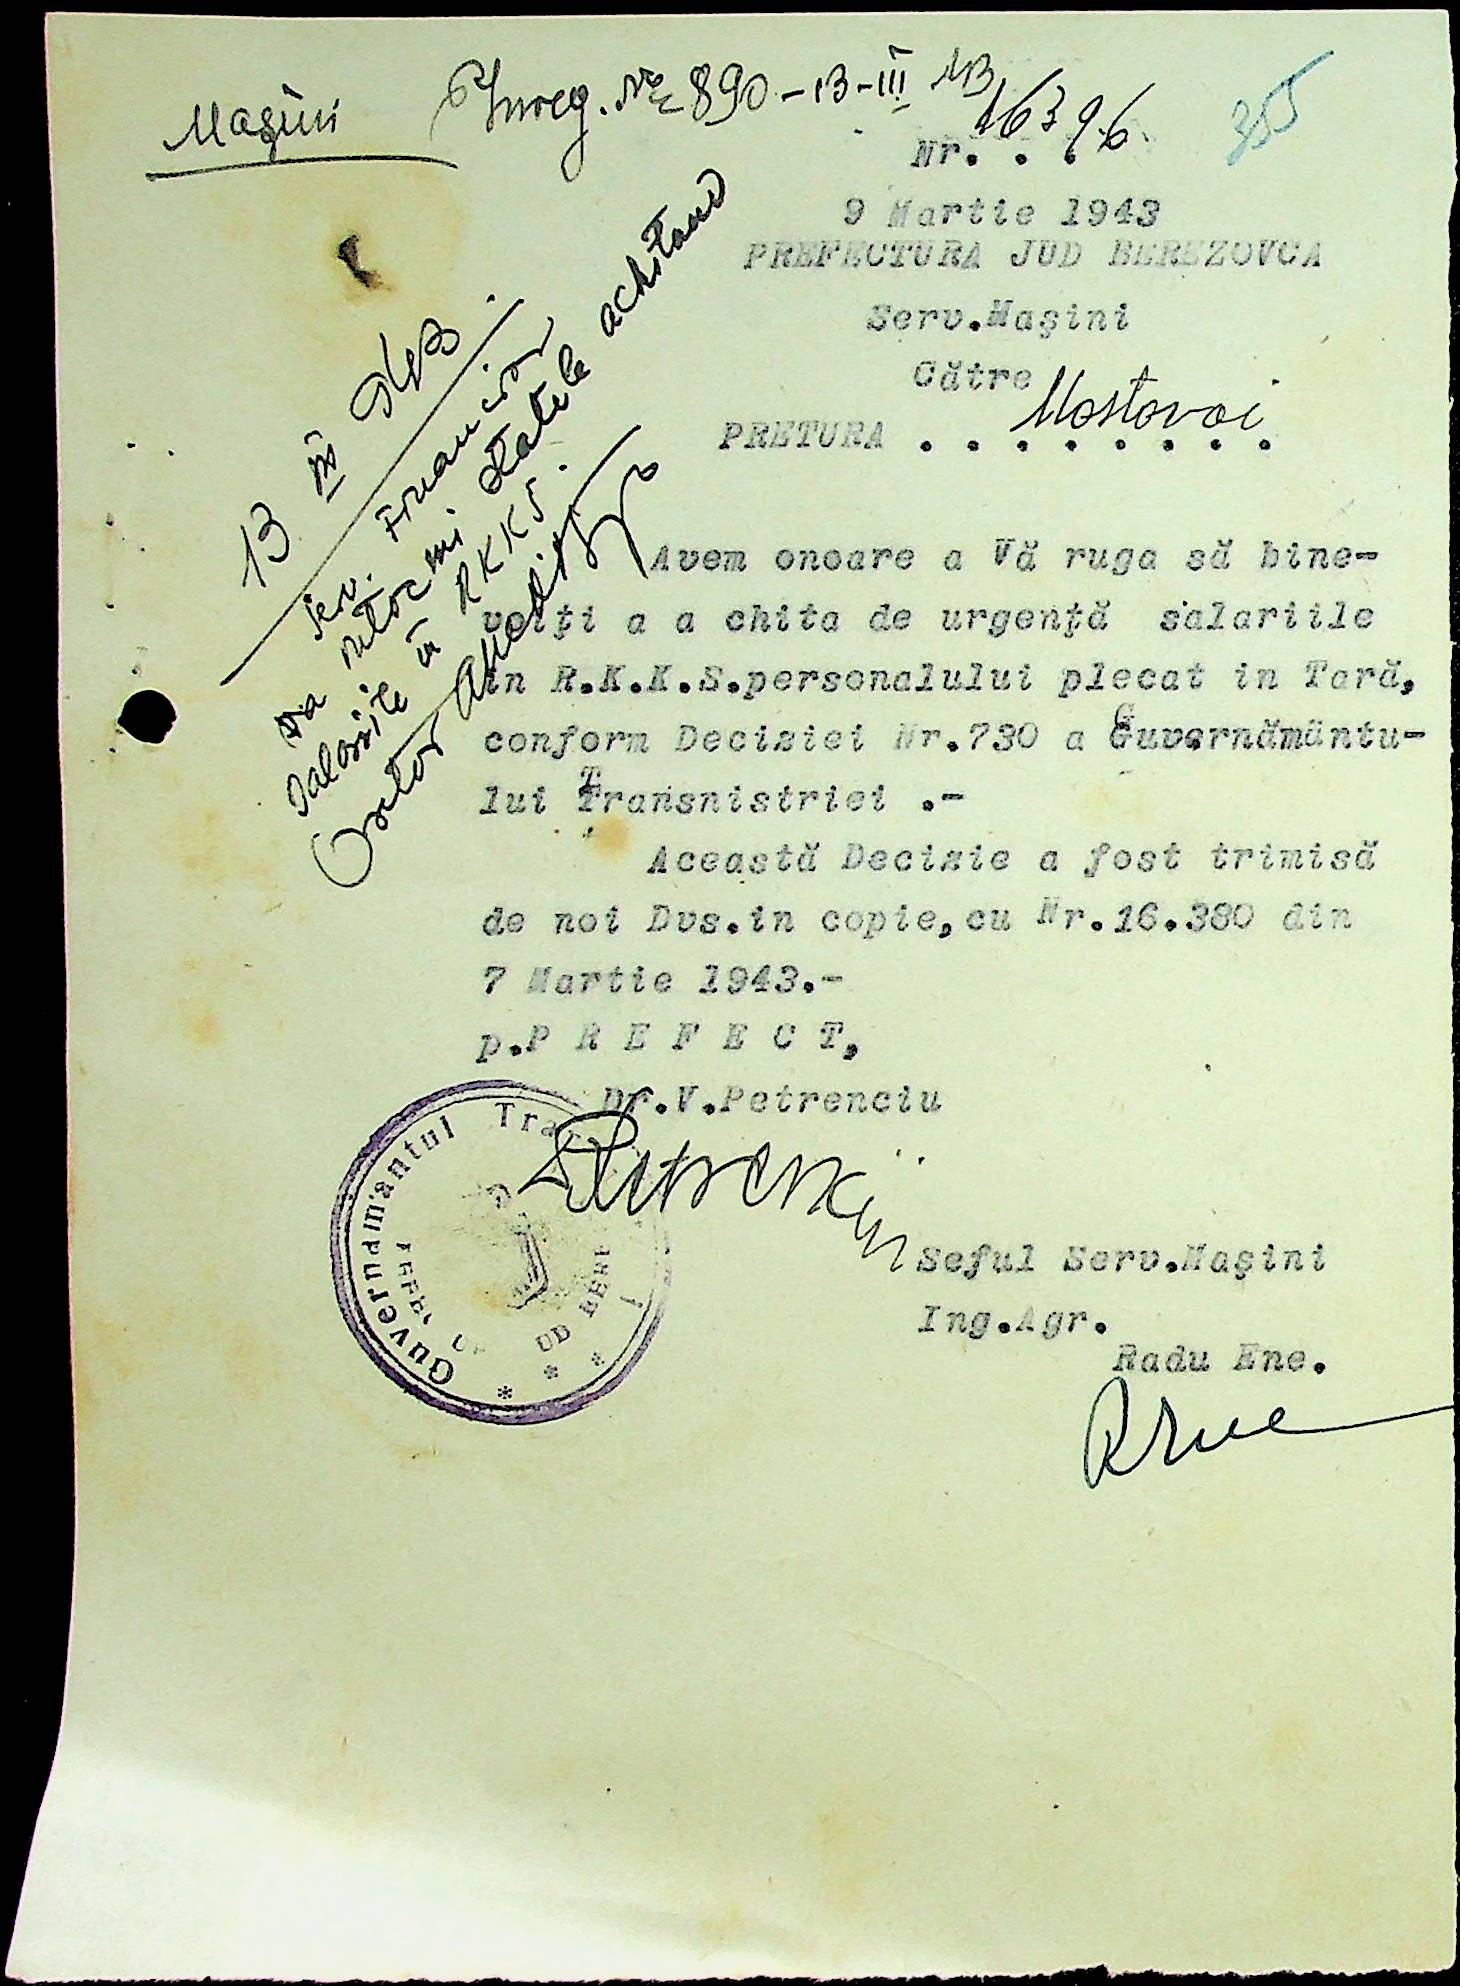 Mașini
Inreg. Nr 890-13-III 943
355
Nr. . . . 16396
9 Martie 1943
PREFECTURA JUD BEREZOVCA
Serv.Mașini
Către
PRETURA . . . . . . . . Mostovoi
13 III 943
Serv. Financiar
va intocmi statele achitand
salariile in RKKS.
Avem onoare a Vă ruga să bine-
voiți a a chita de urgență salariile
in R.K.K.S.personalului plecat in Tară,
conform Deciziei Nr.730 a Guvernământu-
lui Transnistriei .-
Această Decizie a fost trimisă
de noi Dvs.in copie,cu Nr.16.380 din
7 Martie 1943.-
p.P R E F E C T,
Dr.V.Petrenciu
Guvernamantul Tra
UD BERE
Seful Serv.Mașini
Ing.Agr.
Radu Ene.
REne